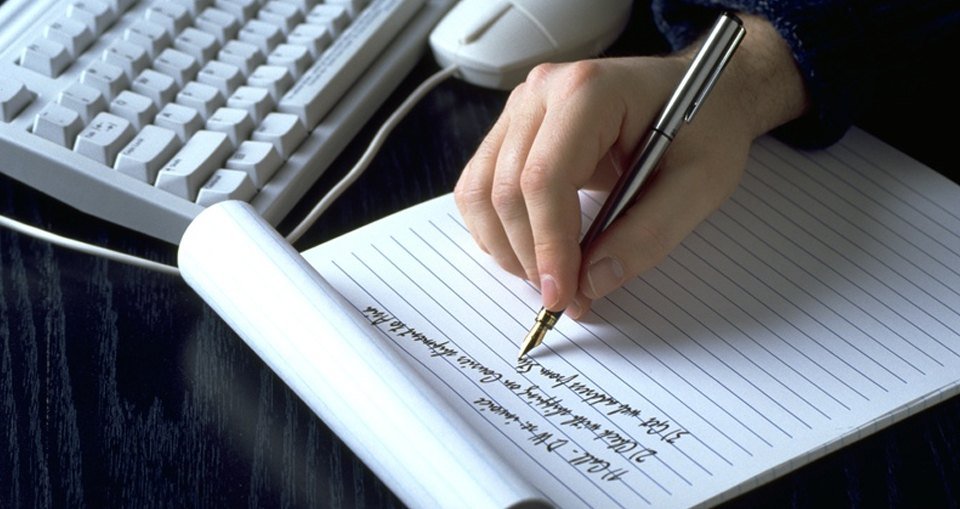 1) Call - DW re: invoice
2) Check with shipping on Cannes shipment to Asia
3) Get web address from